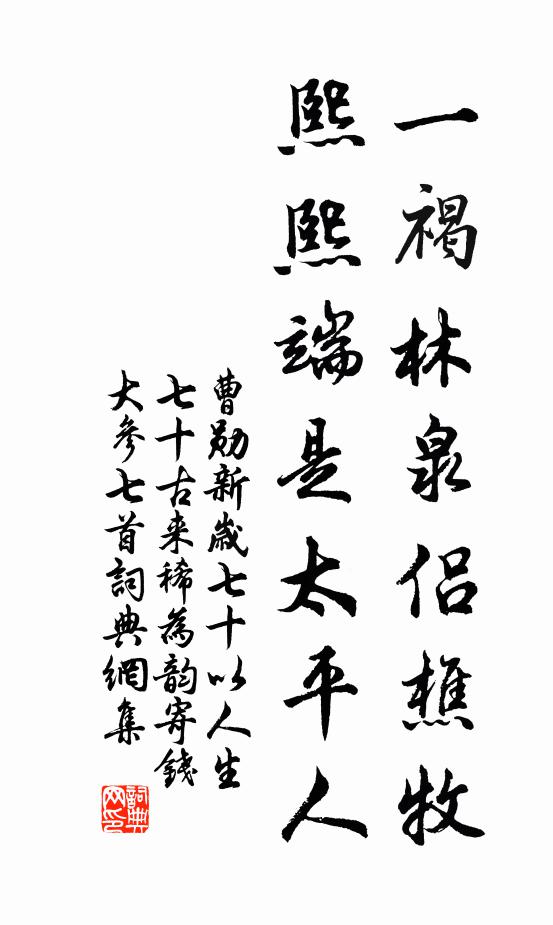 一褐林泉侣樵牧
熙熙端是太平人
曹勋新歲七十以人生
七十古来稀為韵寄錢
大參七首詞典網集
詞典
网印